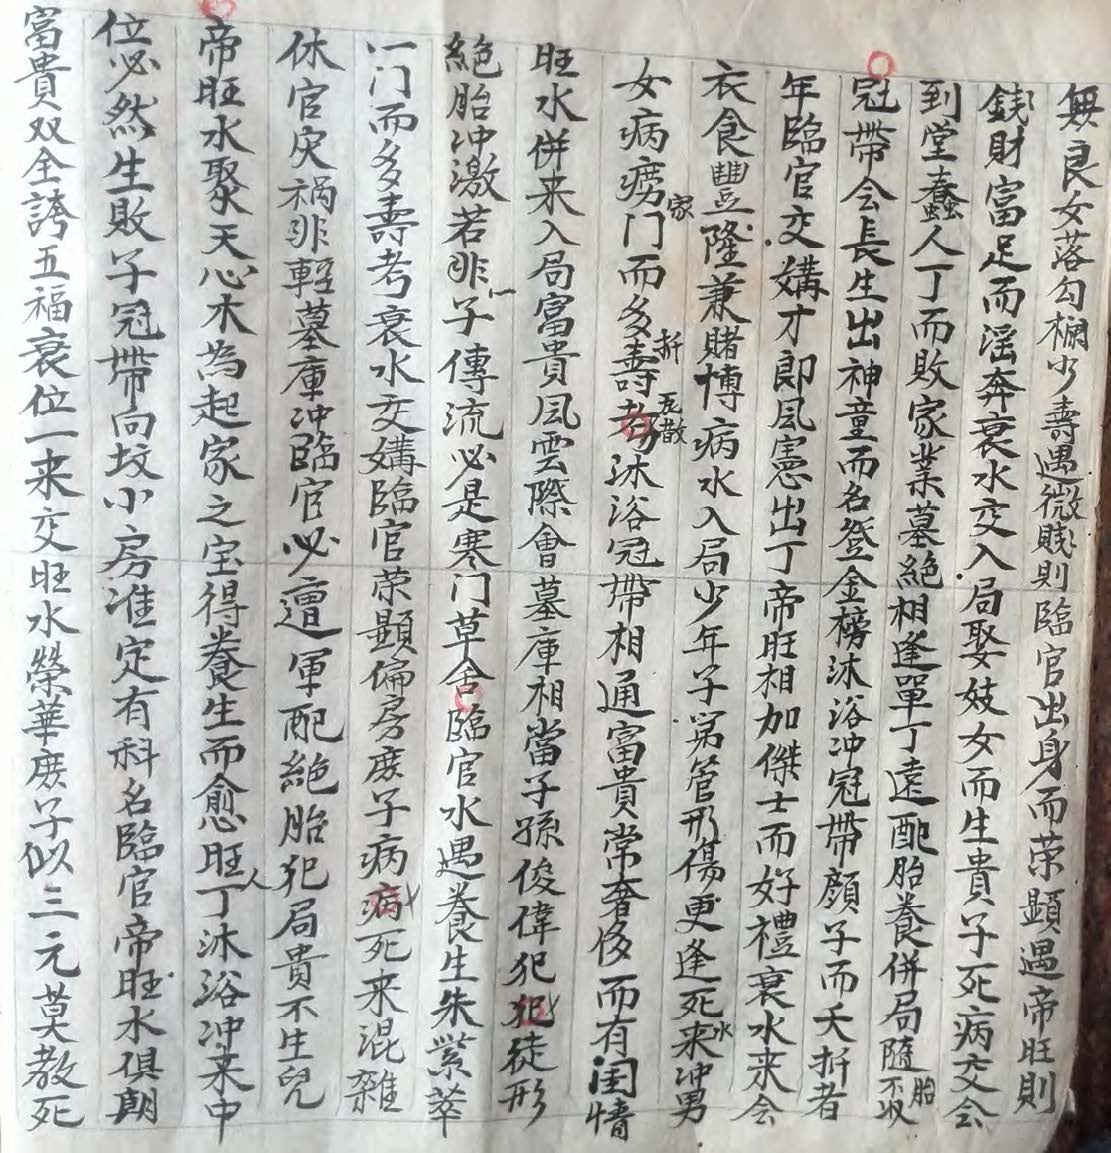 無良女落勾欄少壽遇微賎則臨官出身而荣顕遇帝旺則
銭財富足而滛奔衰水交入局娶妓女而生貴子死病交会
到堂蠢人丁而敗家業墓絶相逢單丁遠配胎養併局隨胎不收
冠帶会長生出神童而名登金榜沐浴冲冠帶顔子而夭折者
年臨官交媾才郎風憲出丁帝旺相加傑士而好禮衰水来会
衣食豐隆兼賭博病水入局少年子弟管形傷更逢死来水冲男
女病痨门家而多壽折夯瓦散沐浴冠帶相通富貴常奢侈而有闺情
旺水併来入局富貴风雲際會墓庫相當子孫俊偉犯犯徒形
絶胎冲激若非一子傳流必是寒门草舍臨官水遇養生朱紫萃
一门而多壽考衰水交媾臨官荣顕偏房庶子病病死来混雜
休官灾祸非輕墓庫冲臨官必遭軍配絶胎犯局貴不生兒
帝旺水聚天心木為起家之宝得養生而愈旺人丁沐浴冲来中
位必然生敗子冠帶向坟小房准定有科名臨官帝旺水俱朝
富貴双全誇五福衰位一来交旺水榮華庶子似三元莫教死